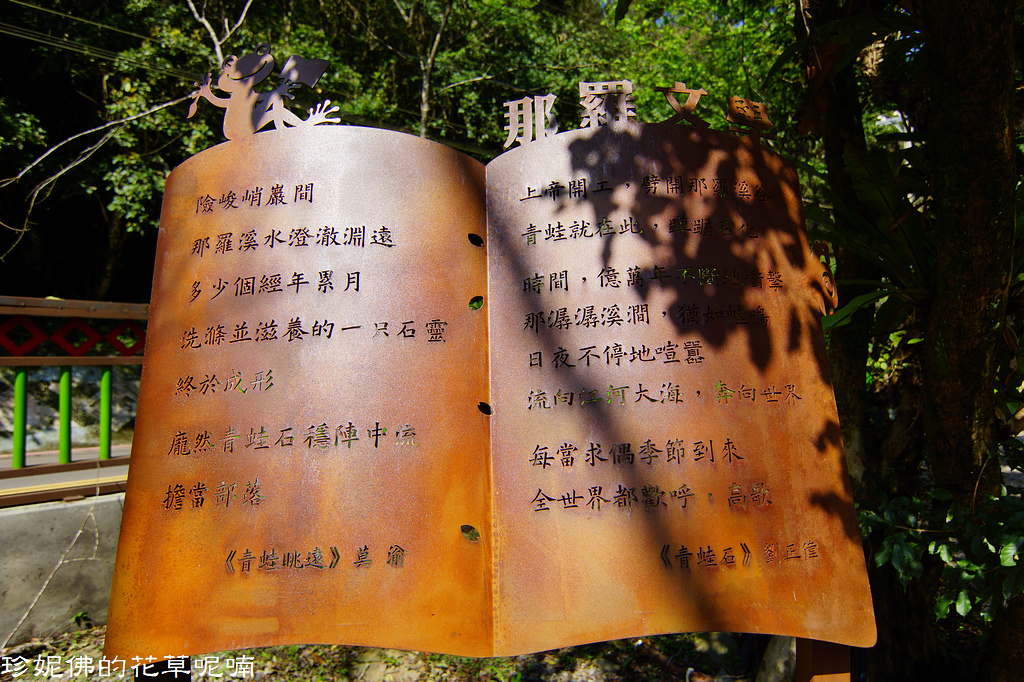 那羅文學
險峻峭巖間
那羅溪水澄澈淵遠
多少個經年累月
洗滌並滋養的一只石靈
終於成形
龐然青蛙石穩陣中流
擔當部落
《青蛙眺遠》莫渝
上帝開工，劈開那羅溪谷
青蛙就在此，
時間，億萬年不斷地衝擊
那潺潺溪澗，猶如蛙鳴
日夜不停地喧囂
流向江河大海，奔向世界
每當求偶季節到來
全世界都歡呼，高歌
《青蛙石》劉正偉
珍妮佛的花草呢喃